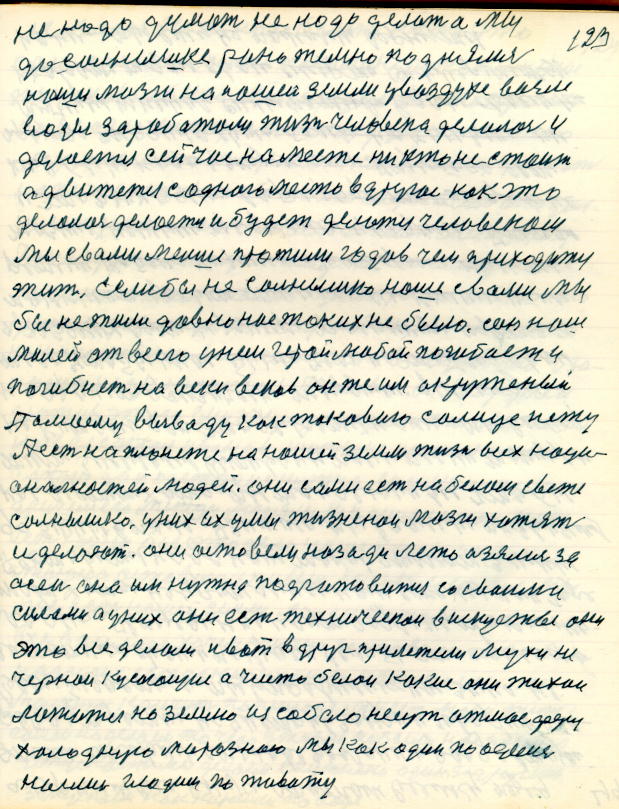 не надо думат не надо делот а мы
123
до солнышке рано темно поднялися
наши мозги на нашей земли у воздухе возле
воды заработали жизн человека делолоя и
делоется сейчас на месте никто не стоит
а движется содного место в другое как это
делолоя делоется и будет делотися человеком
мы свами менши прожили годов чем приходится
жит, если бы не солнышко наше свами мы
бы не жили довно нас токих не было. сон наш
милей от всего у нем герой любой погибает и
погибнет на веки веков он же им окружоный
По моему выводу как токового солнце нету
А ест на плонете на нашей земли жизн всех наци-
оналностей людей. они сами ест на белом свете
солнышко. у них их умы жизненои мозги хотят
и делоют. они остовели назади лето взялися за
осен она им нужна подготовится со своими
силами а у них они ест техническои в искустве они
это все делоли и вот вдруг прилетели мухи не
чернои кусающие а чисто белои какие они тихои
ложатся на землю из собою несут атмосферу
холодную морозною мы как один по оделися
на глин гладим по животу